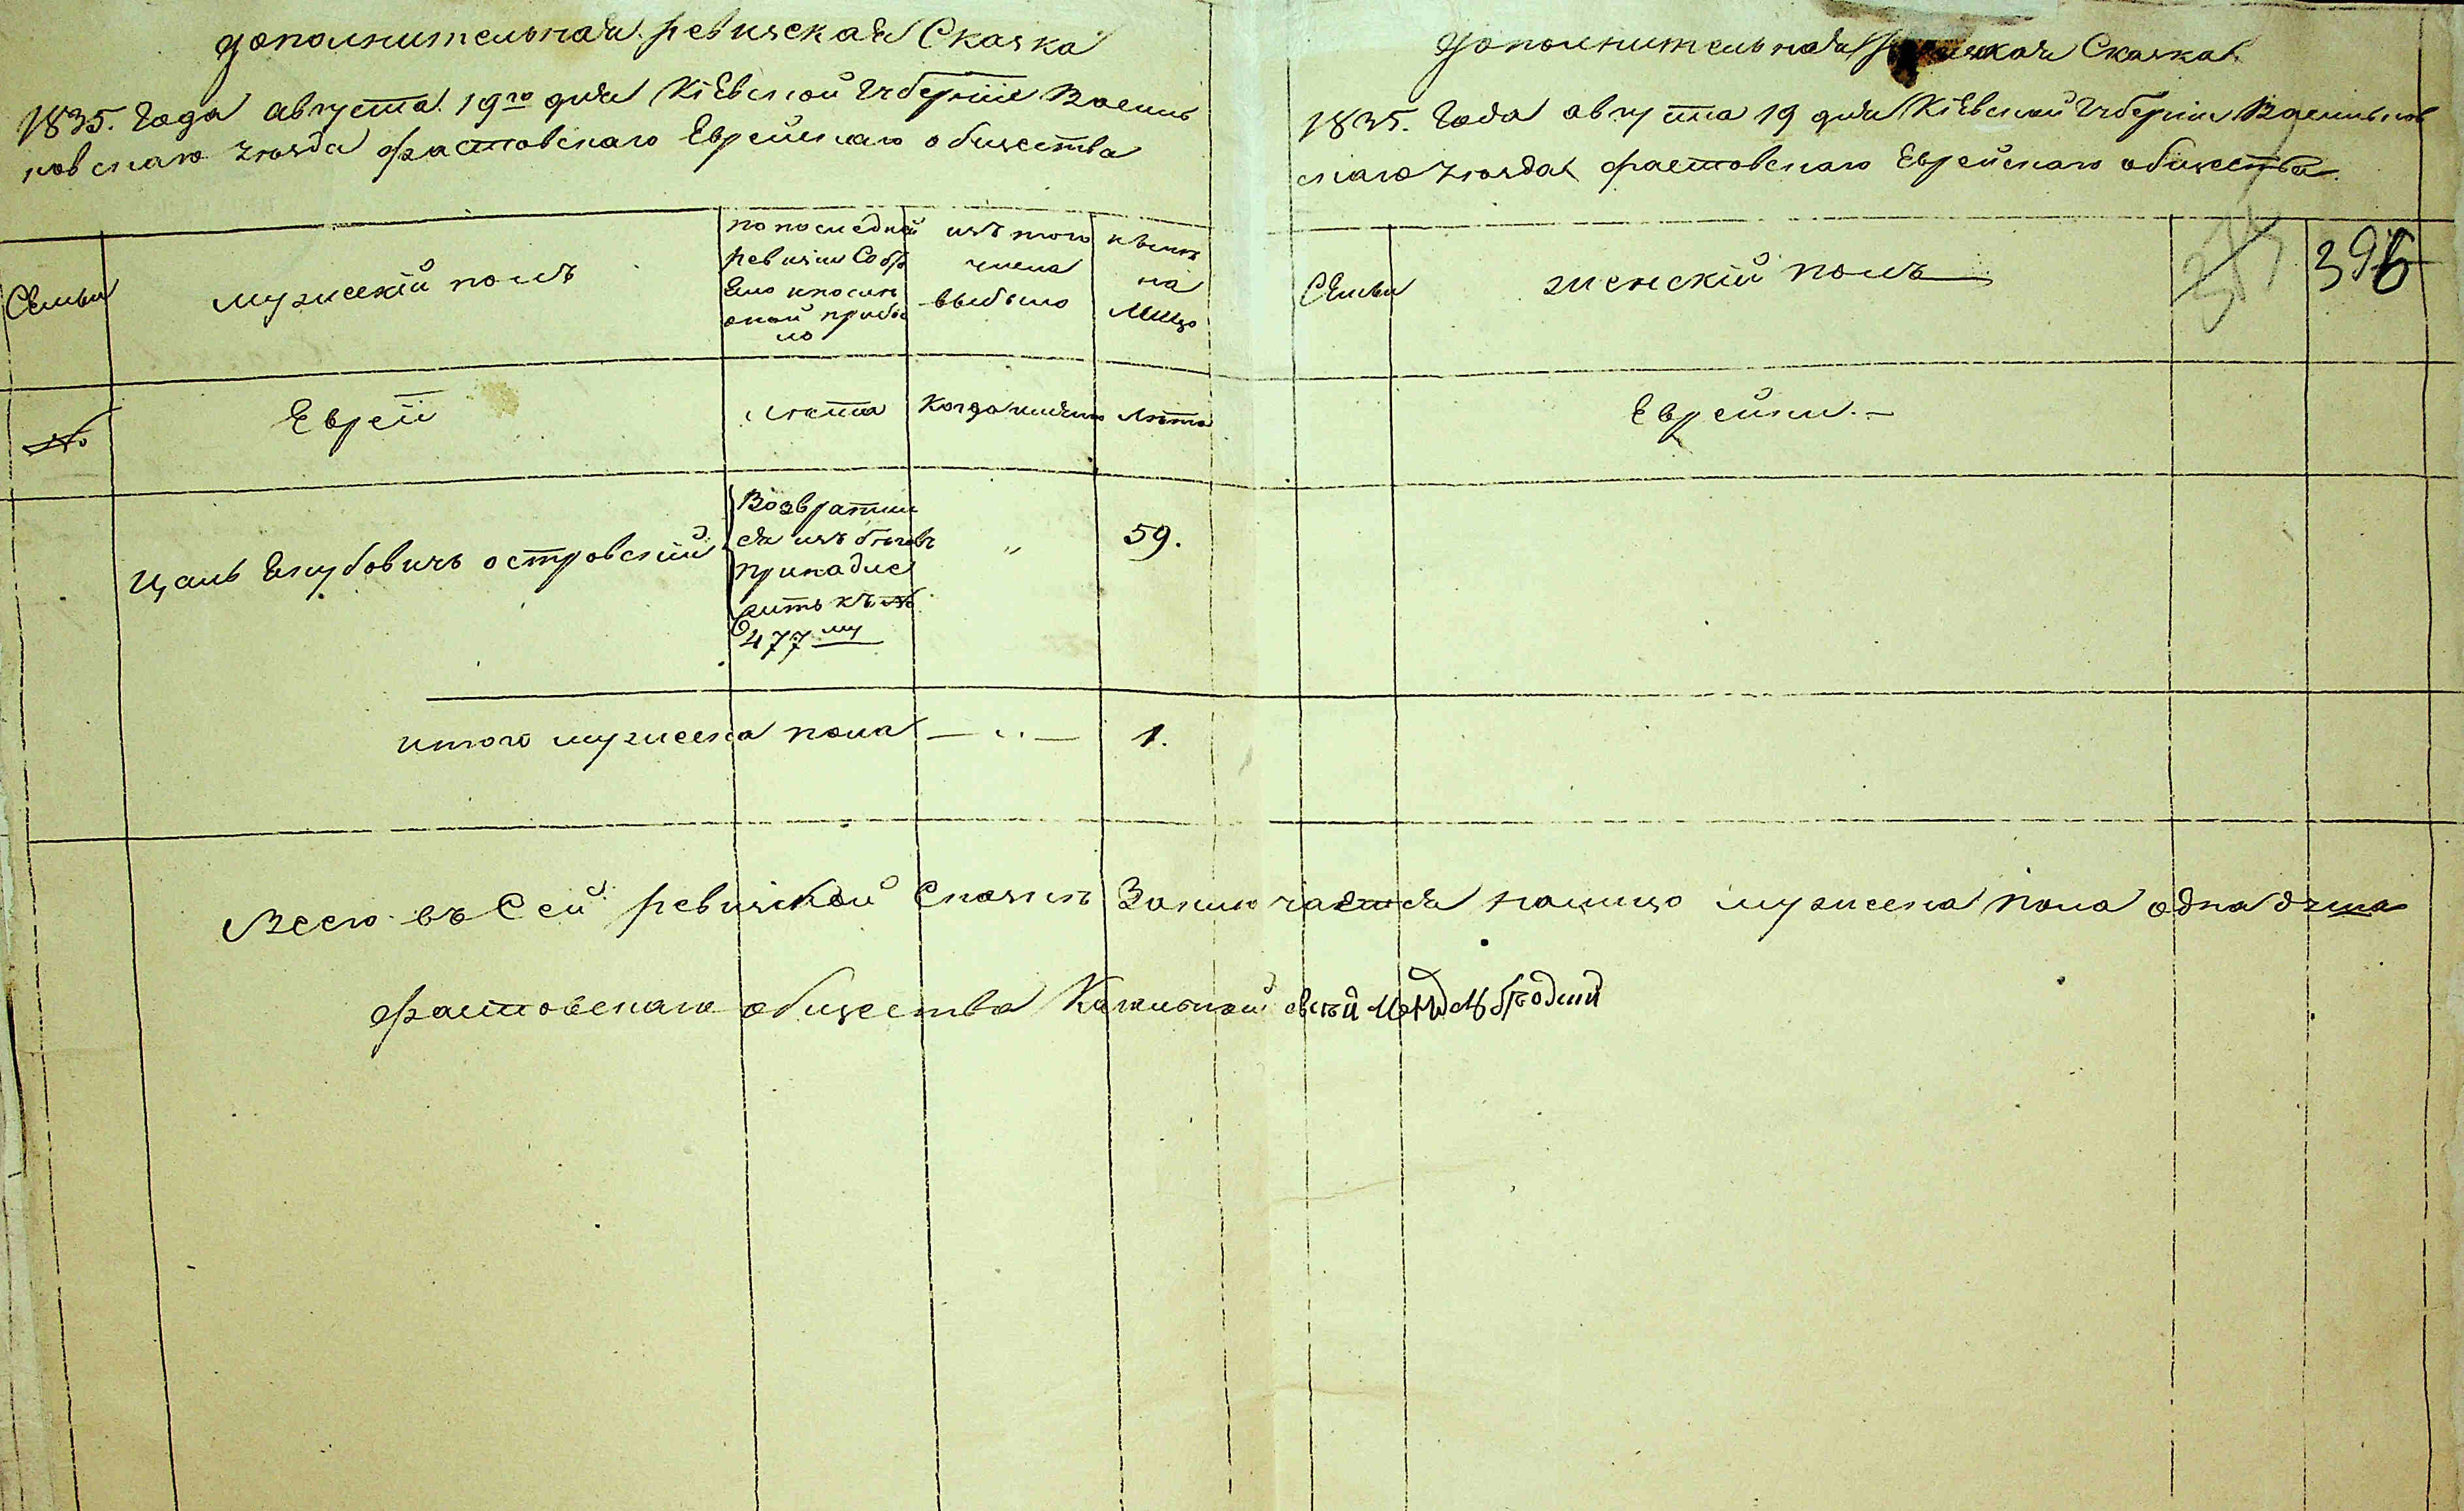 дополнительная ревизская Сказка
1835. Года августа 19го дня Кіевской Губерніи Василь
ковскаго уезда фастовскаго Еврейскаго общества
Семьи
мужескій полъ
по последней
ревизіи Состо
Яло и после
оной прибы
ло
изъ того
числа
выбыло
ныне
на
лицо
№
Евреи
лета
Когда имянно
лета
Цаль Якубовичъ островскій
Возвратил
ся изъ беговъ
принадле
жить къ №
477му
"
59.
итого мужеска пола — " —
1.
дополнительная ская Сказка
1835. Года августа 19 дня Кіевской Губерніи Васильков
скаго уезда фастовскаго Еврейскаго общества
Семьи
женскій полъ
396
Еврейки. —
Всего въ Сей ревизской Сказке Заключается налицо мужеска пола одна душа
фастовскаго общества Кагальный